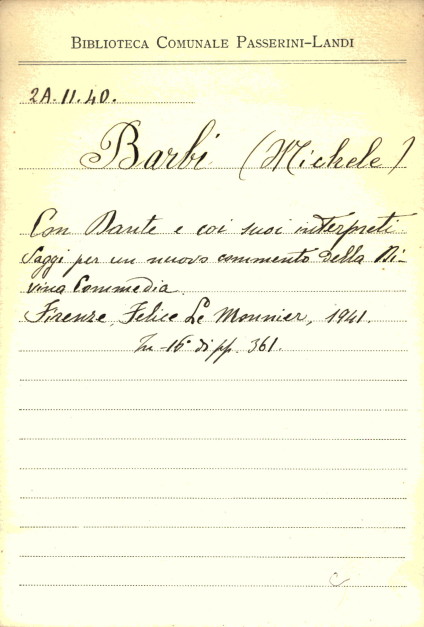 BIBLIOTECA COMUNALE PASSERINI-LANDI
2A.II.40.
Barbi (Michele)
Con Dante e coi suoi interpreti.
Saggi per un nuovo commento della Di-
vina Commedia.
Firenze, Felice Le Monnier, 1941.
In-16° di pp. 361.
C